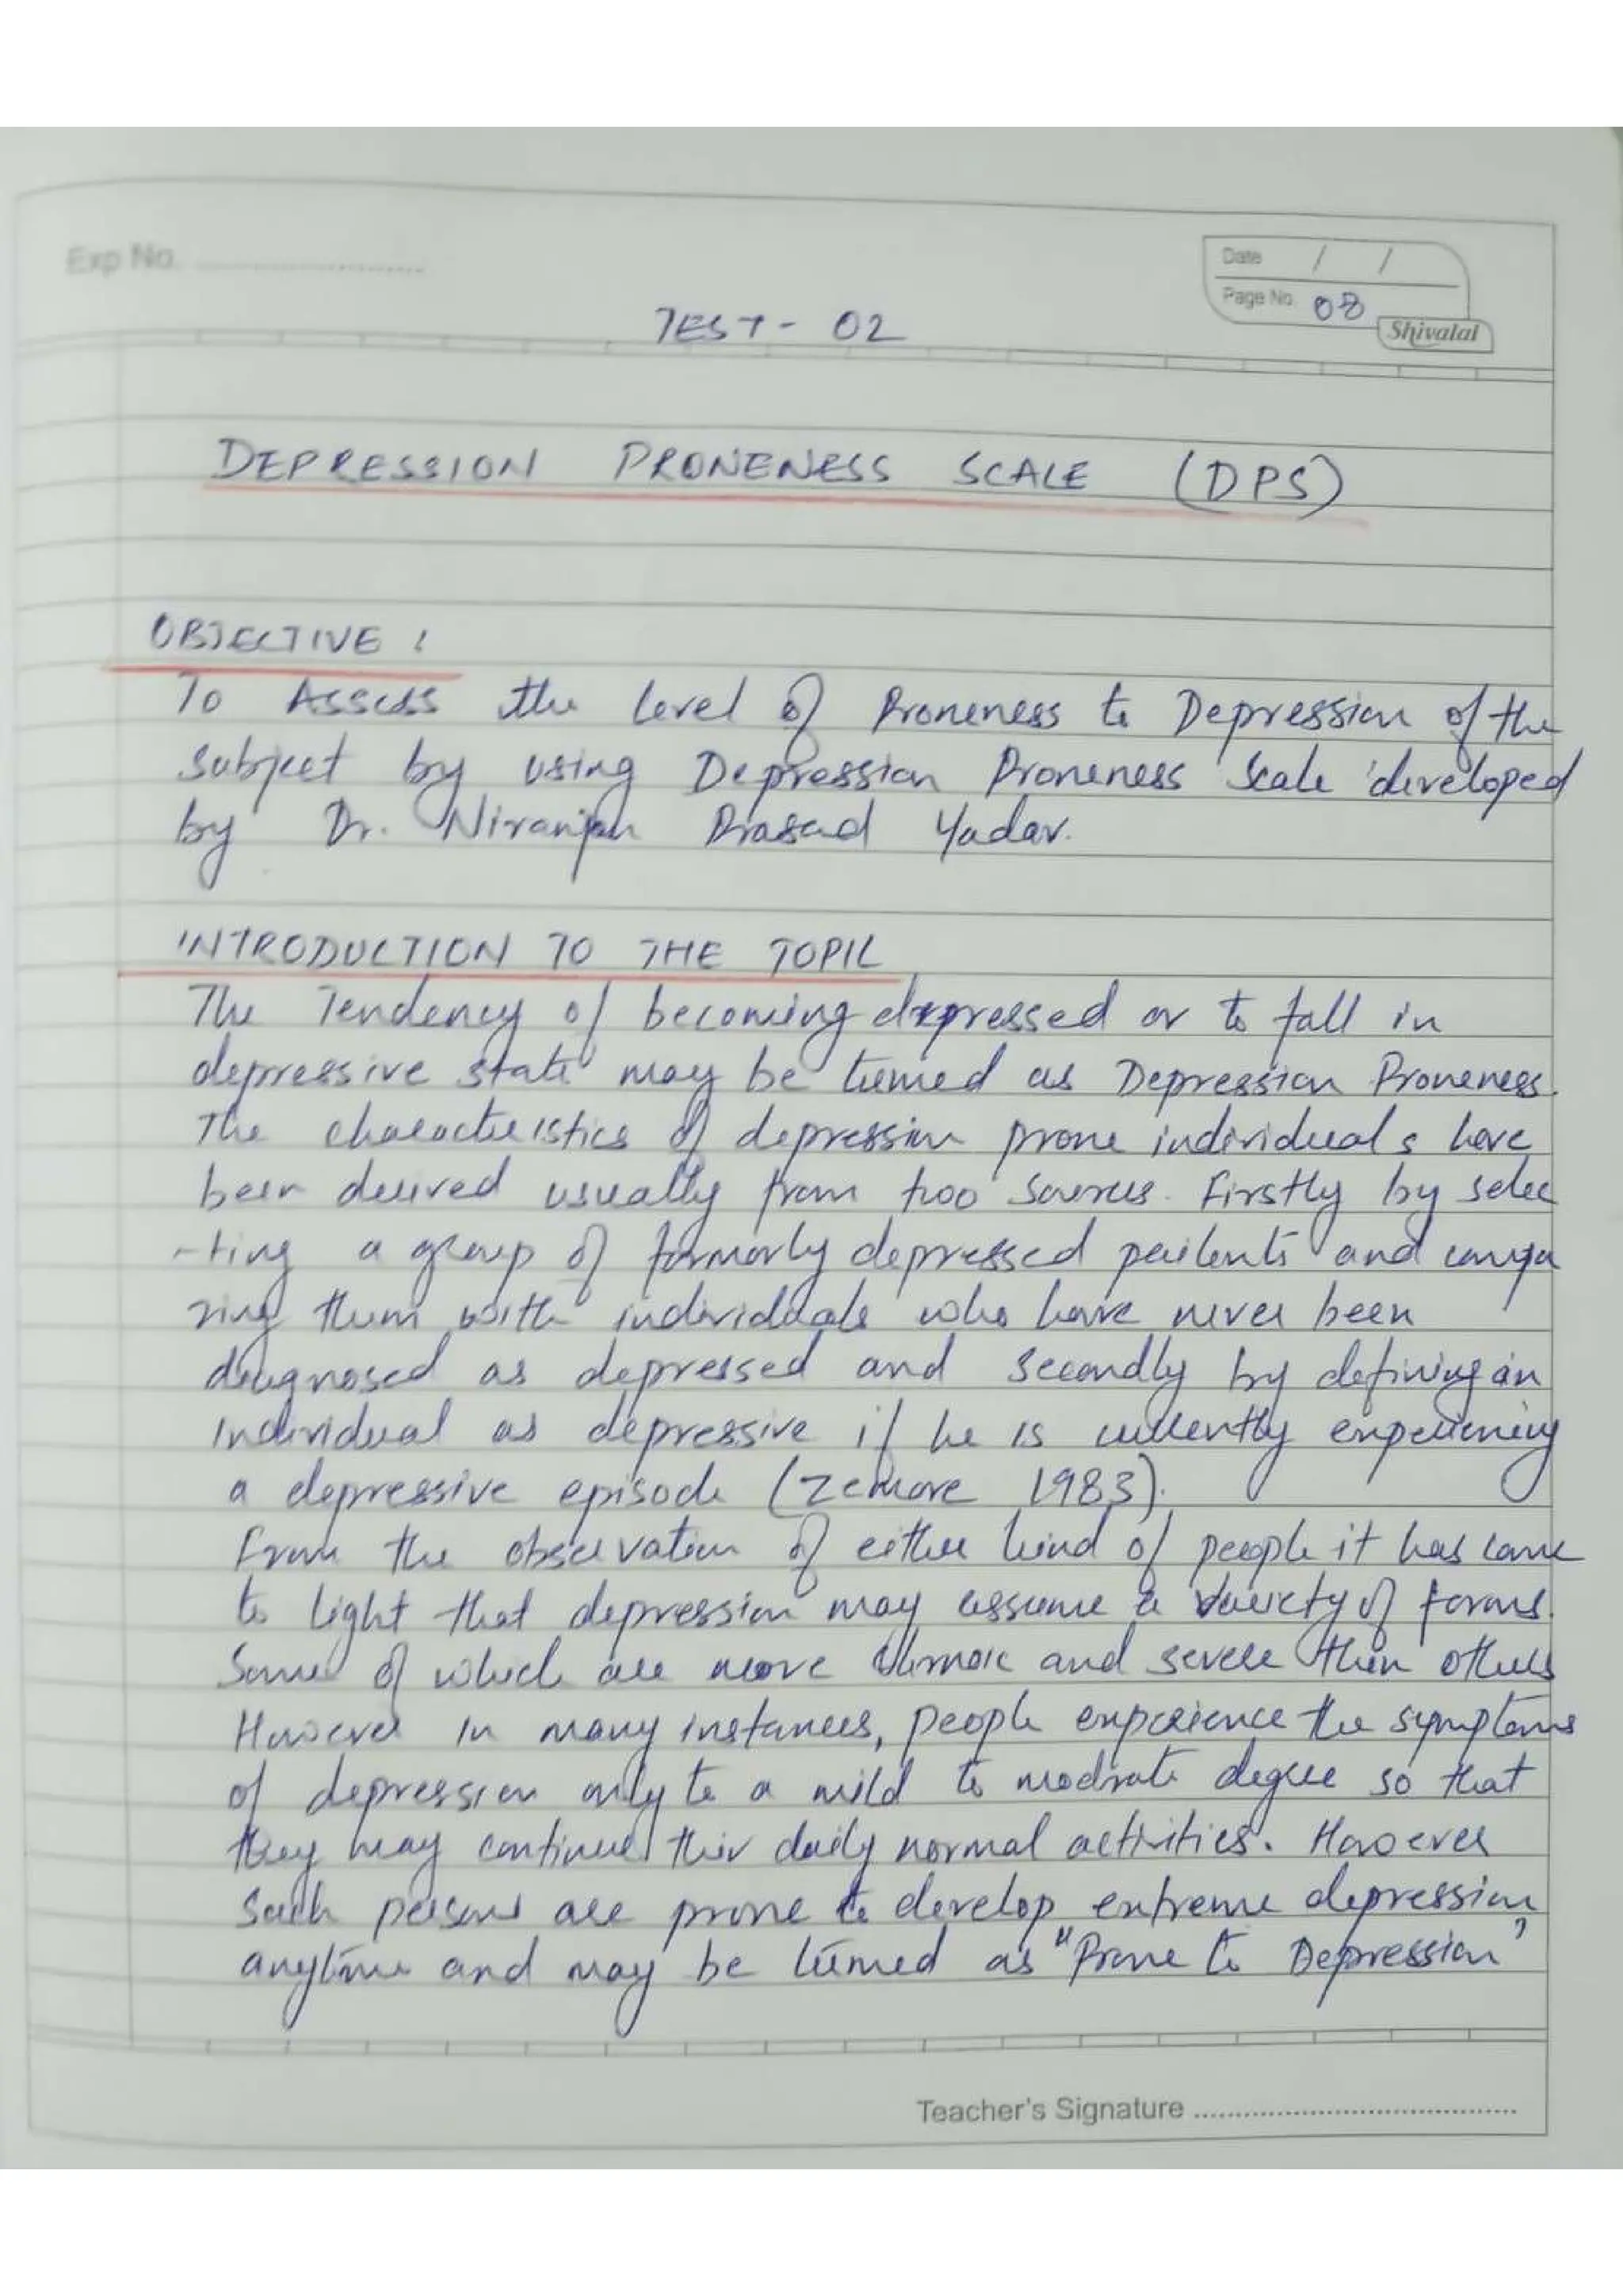 Exp No. ........................
Date / /
Page No. 08
Shivalal
TEST - 02
DEPRESSION PRONENESS SCALE (DPS)
OBJECTIVE :
To Assess the level of Proneness to Depression of the
subject by using Depression Proneness Scale developed
by Dr. Niranjan Prasad Yadav.
INTRODUCTION TO THE TOPIC
The Tendency of becoming depressed or to fall in
depressive state may be termed as Depression Proneness.
The characteristics of depression prone individuals have
been derived usually from two sources. Firstly by selec
-ting a group of formorly depressed patients and compa
ring them with individuals who have never been
diagnosed as depressed and secondly by defining an
individual as depressive if he is currently experiening
a depressive episode (Zemore 1983).
From the observation of either kind of people it has come
to light that depression may assume a variety of forms.
Some of which are more chronic and severe then others
However in many instances, people experience the symptoms
of depression only to a mild to modrate degree so that
they may continue their daily normal activities. However
such persons are prone to develop extreme depression
anytime and may be termed as "Prone to Depression"
Teacher's Signature ........................................